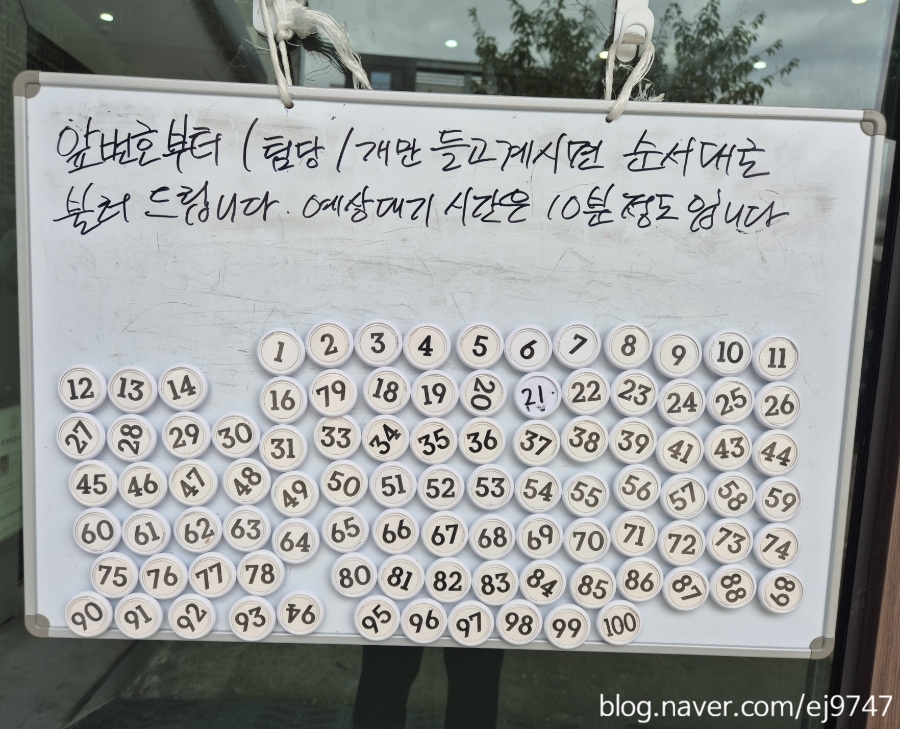 앞번호부터 1팀당 1개만 들고계시면 순서대로
불러 드립니다. 예상대기 시간은 10분 정도 입니다
1 2 3 4 5 6 7 8 9 10 11
12 13 14 16 79 18 19 20 21 22 23 24 25 26
27 28 29 30 31 33 34 35 36 37 38 39 41 43 44
45 46 47 48 49 50 51 52 53 54 55 56 57 58 59
60 61 62 63 64 65 66 67 68 69 70 71 72 73 74
75 76 77 78 80 81 82 83 84 85 86 87 88 89
90 91 92 93 94 95 96 97 98 99 100
blog.naver.com/ej9747